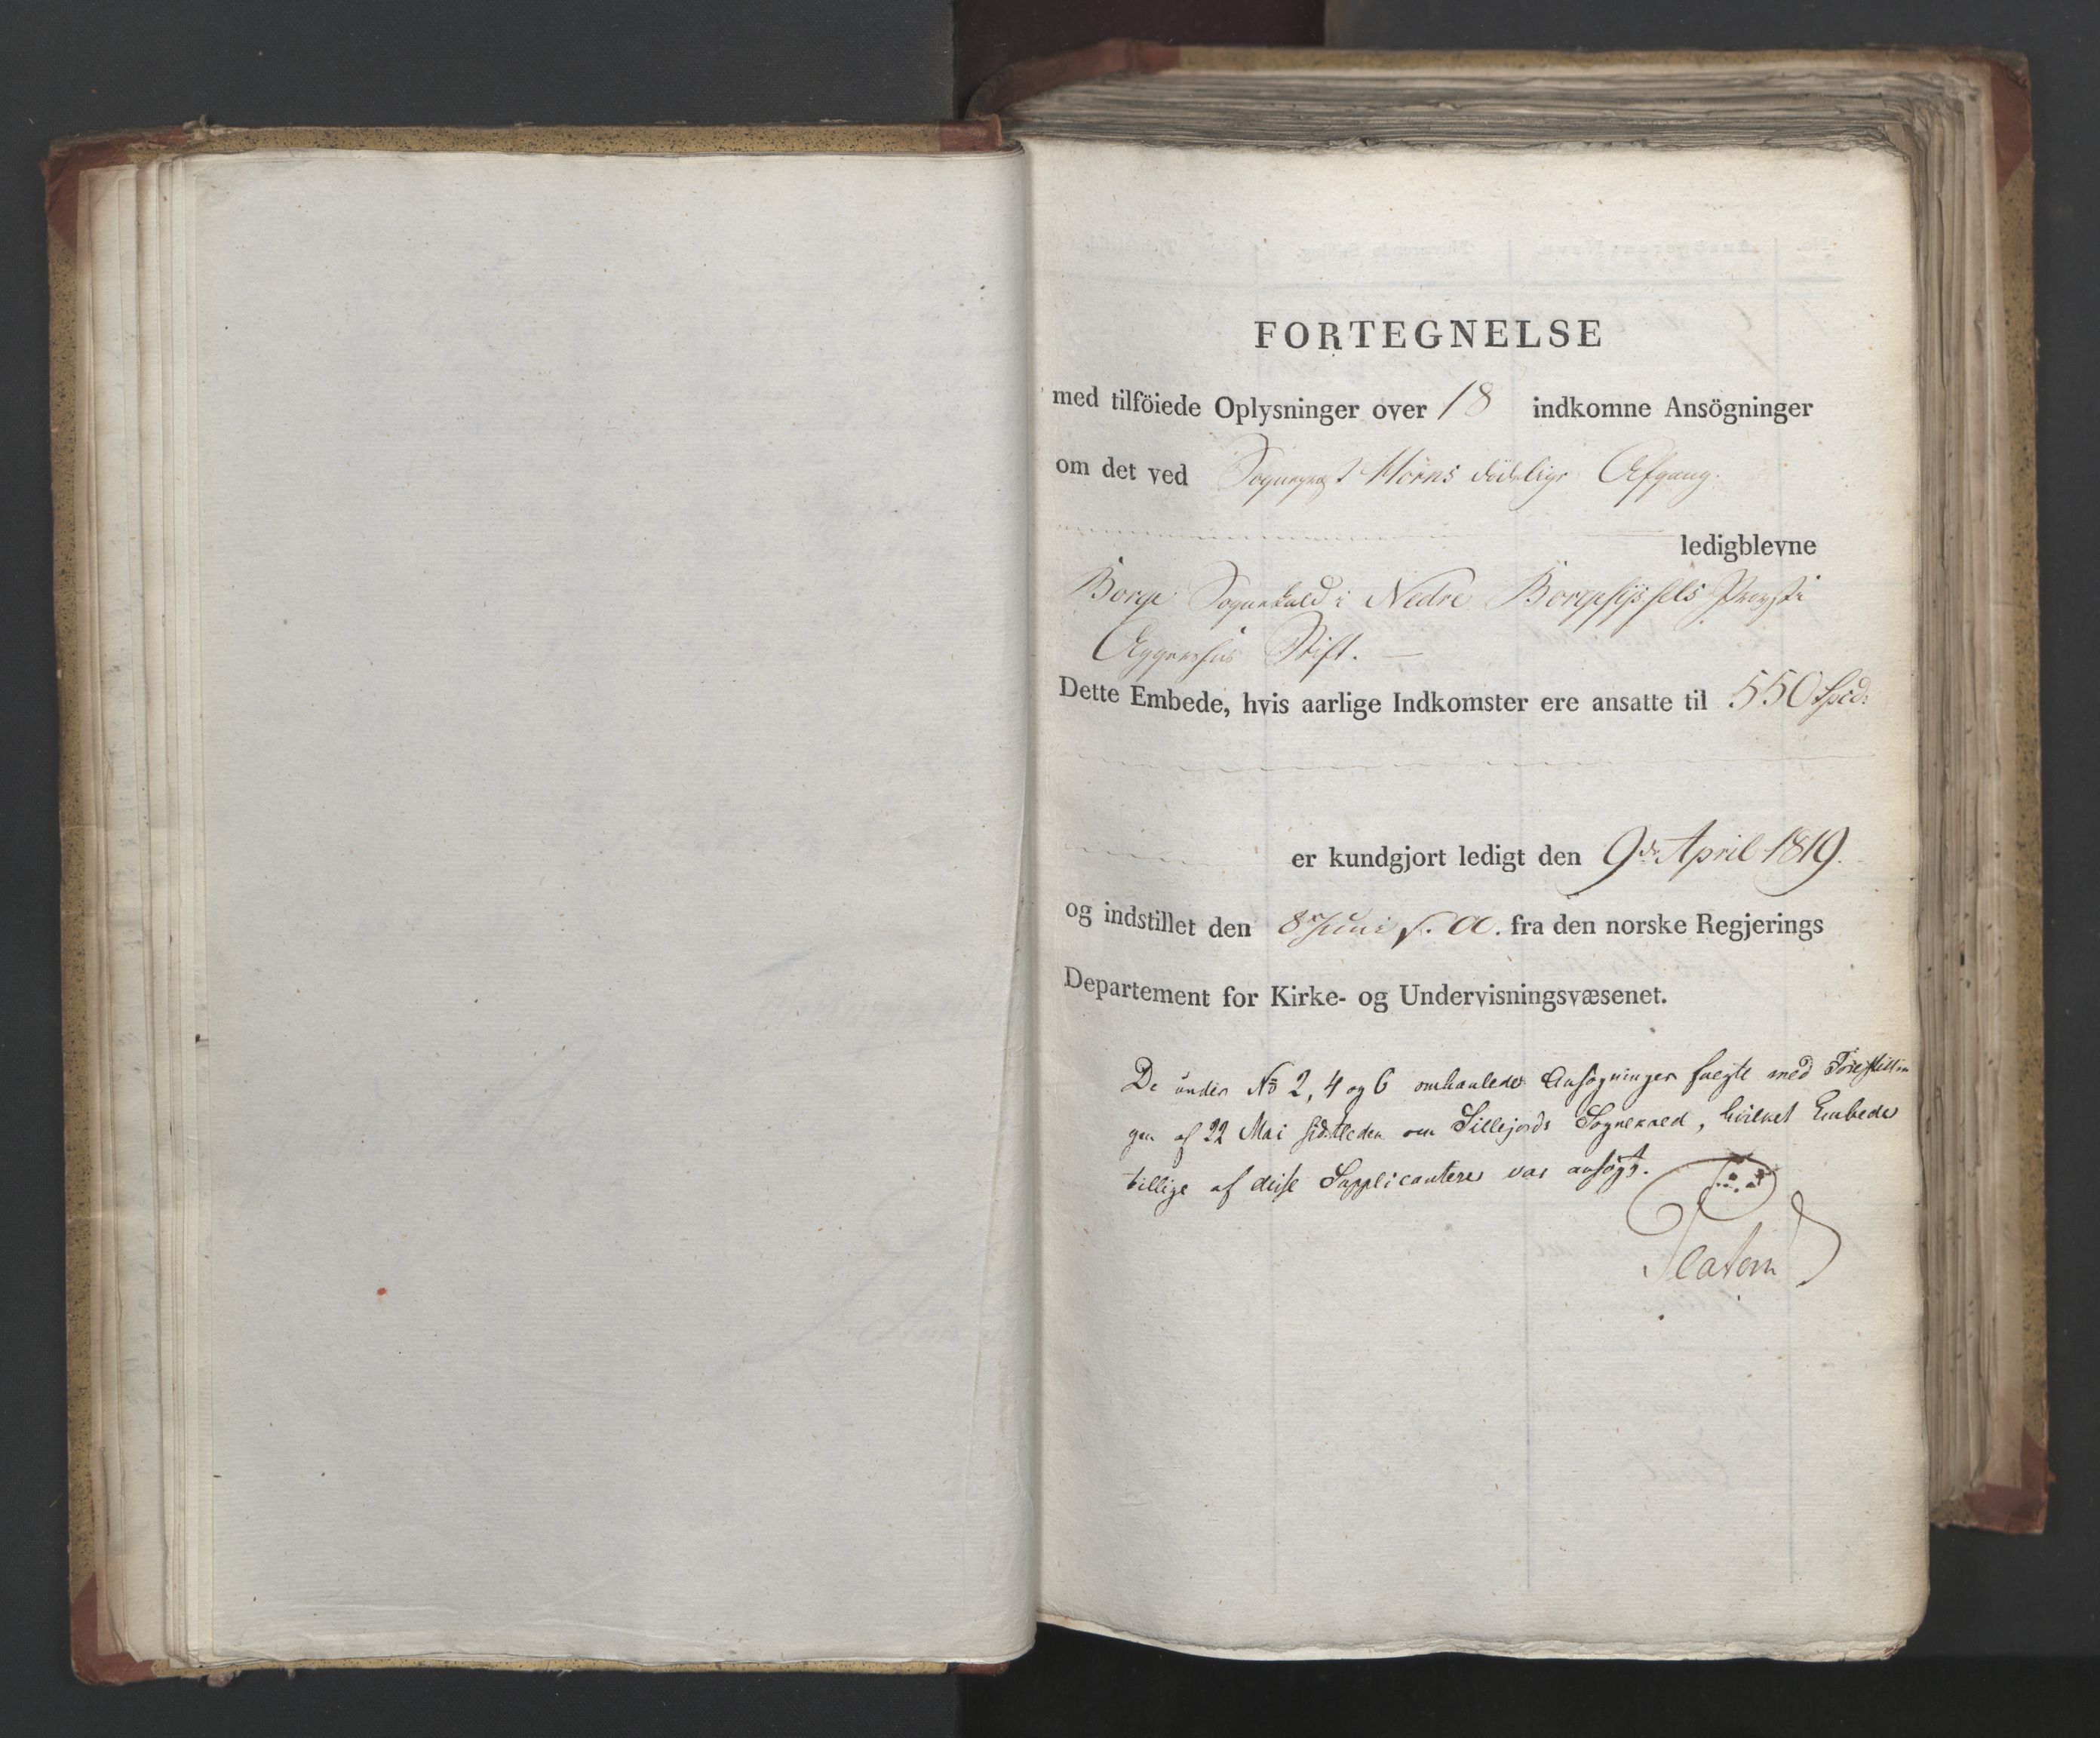 FORTEGNELSE
med tilföiede Oplysninger over 18 indkomne Ansögninger
om det ved Sognepræst Horns dødelige Afgang.
ledigblevne
Borge Sognekald i Nedre Borgesyssels Provstie
Aggershus Stift. —
Dette Embede, hvis aarlige Indkomster ere ansatte til 550 Spcd:
er kundgjort ledigt den 9de April 1819.
og indstillet den 8 Juni s. A. fra den norske Regjerings
Departement for Kirke- og Undervisningsvæsenet.
De under No 2, 4 og 6 omhandlede Ansøgninger fuldte med Forestillin
gen af 22 Mai sidstleden om Sillejords Sognekald, hvilket Embede
tillige af disse Supplicantere var ansøgt.